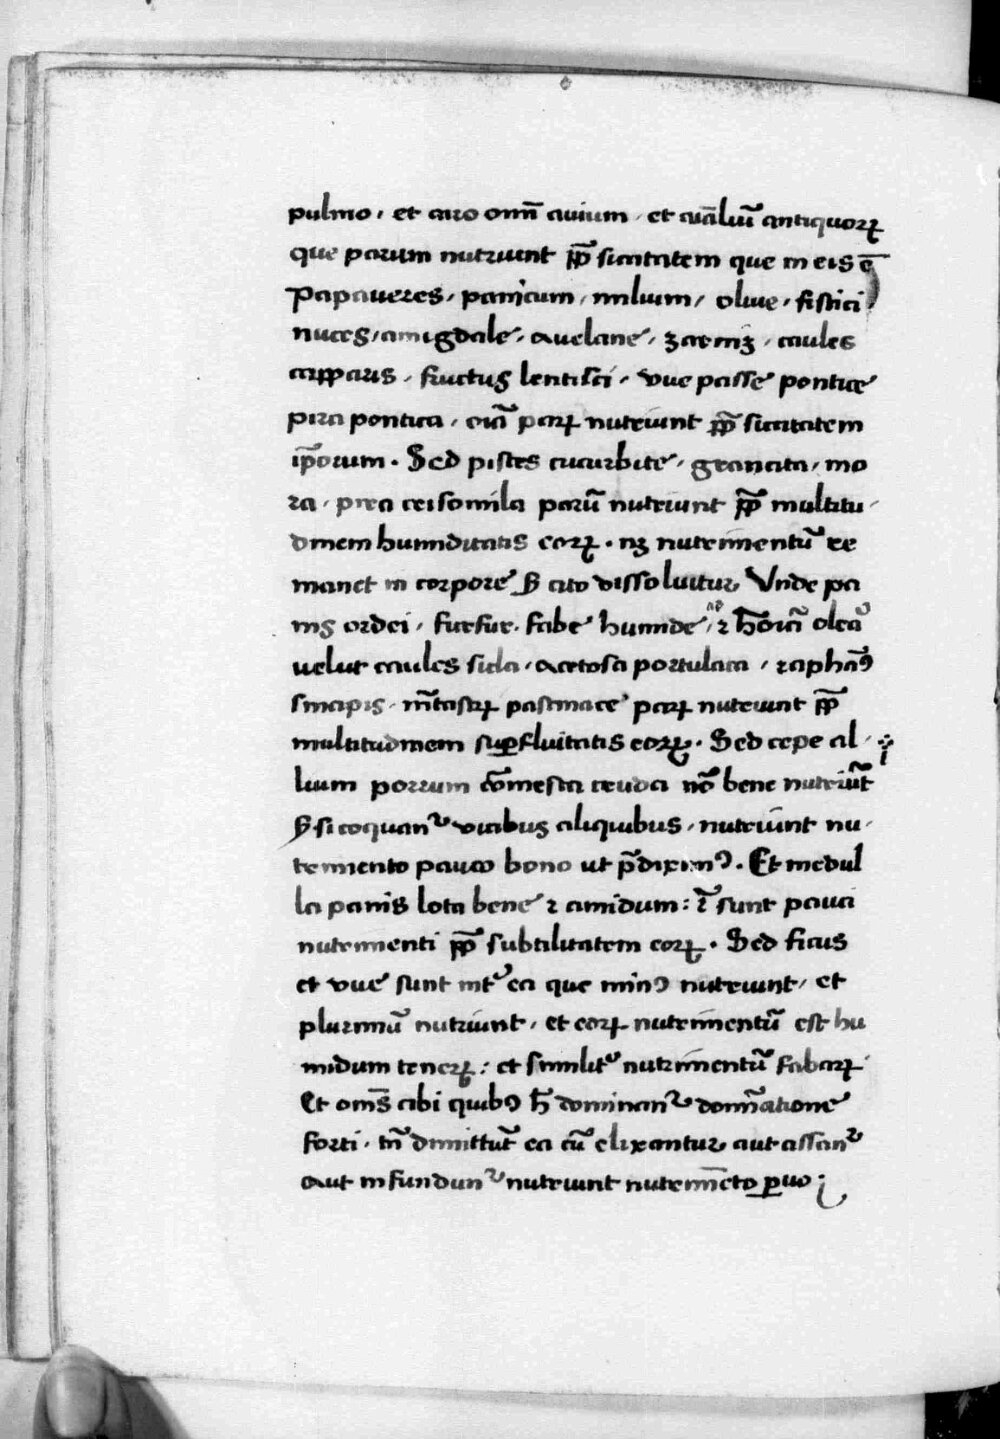 pulmo, et caro om̄ auium, et aīalíuꝫ antiquoꝝ
que parum nutriunt pp̄ siccitatem que in eis ē
Papaueres, panicum, milium, oliue, fistici
nuces, amigdale, auelane, ꝫaꝛniꝫ, caules
capparis, fructus lentisci, vue passe pontice
pira pontica, oīa paꝝ nutriunt pp̄ siccitatem
ip̄orum. Sed pisces cucurbite, granata, mo
ra, pira crisomila parū nutriunt pp̄ multitu
dinem humiditatis eoꝝ. nꝫ nutrimentū re
manet in corpore ꝫ cito dissoluitur. Vnde pa
nis ordei, furfur. fabe humide, ⁊ h̄ oīa olea
velut caules sicla, acetosa portulaca, raphaꝰ
sinapis, mētastꝝ pastinace paꝝ nutriunt pp̄
multitudinem suꝑfluitatis eoꝝ. Sed cepe al
lium porrum cōmesta cruda nō bene nutriūt
ꝫ si coquanᷣ vicibus aliquibus, nutriunt nu
trimento pauco bono ut p̄diximꝰ. Et medul
la panis lota bene ⁊ amidum: r̄ sunt pauci
nutrimenti pp̄ subtilitatem eoꝝ. Sed ficus
et vue sunt intᷣ ea que minꝰ nutriunt, et
plurimū nutriunt, et eoꝝ nutrimentū est hu
midum teneꝝ: et similitᷣ nutrimentū fabaꝝ
Et om̄s cibi quibꝰ h̄ dominanᷣ domīatione
forti, tn̄ dimittūt ea cū elixantur aut assanᷣ
aut infundunᷣ nutriunt nutrimēto ꝑuo;